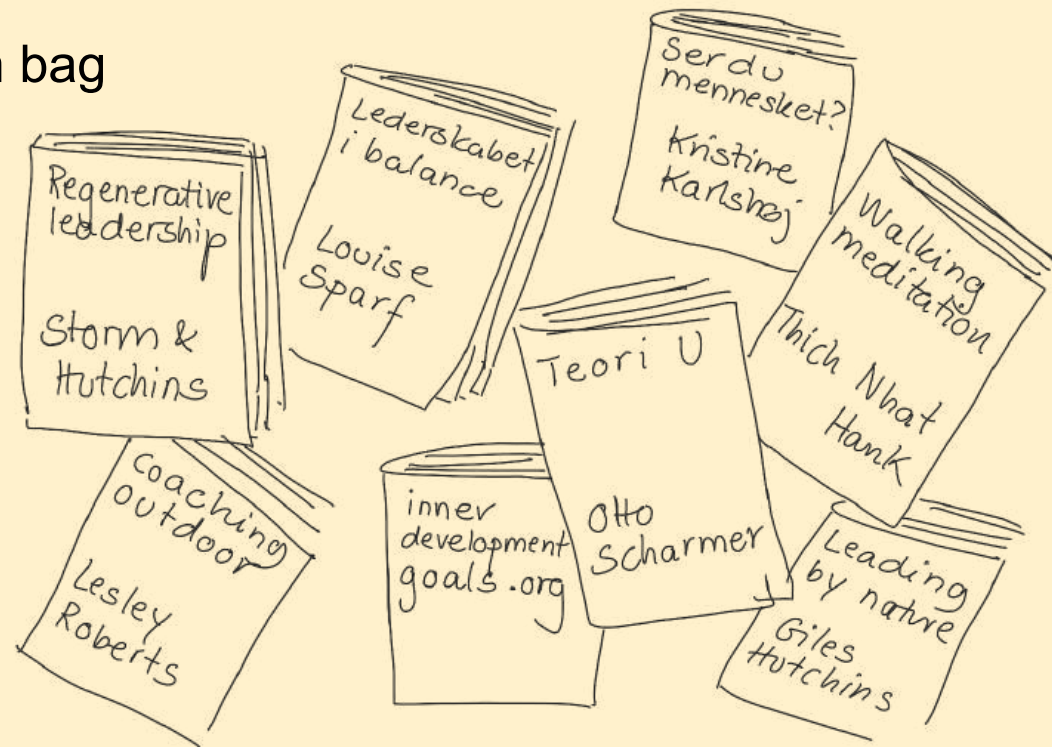 bag
Regenerative
leadership
Storm &
Hutchins
Lederskabet
i balance
Louise
Sparf
Ser du
mennesket?
Kristine
Karlshøj
Walking
meditation
Thich Nhat
Hank
Teori U
Otto
Scharmer
Coaching
outdoor
Lesley
Roberts
inner
development
goals.org
Leading
by nature
Giles
Hutchins